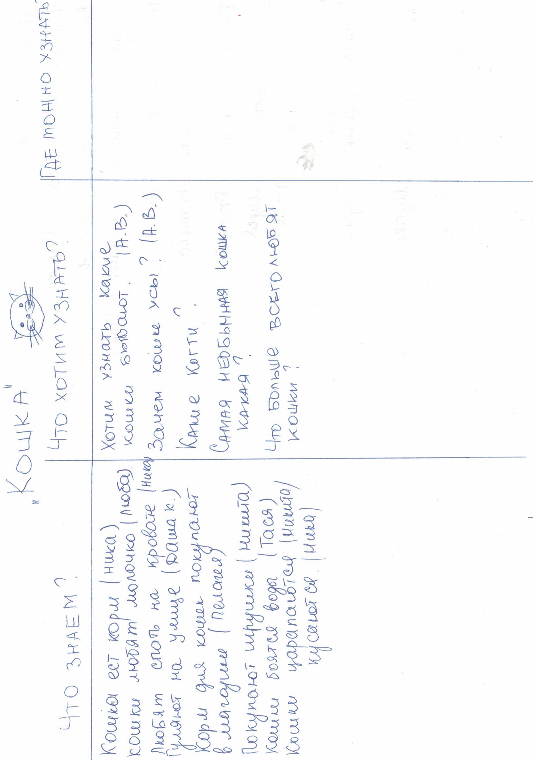 „КОШКА"
ЧТО ЗНАЕМ?
Кошка ест корм (Ника)
кошки любят молочко (Люба)
Любят спать на кровате (Ника)
Гуляют на улице (Даша К.)
Корм для кошек покупают
в магазине (Пелагея)
Покупают игрушки (Никита)
Кошки боятся воды (Тася)
Кошки царапаются (Никита)
кусаются. (Ника)
ЧТО ХОТИМ УЗНАТЬ?
Хотим узнать какие
кошки бывают. (А.В.)
Зачем кошке усы? (А.В.)
Какие когти?
Самая необычная кошка
какая?
Что больше всего любят
кошки?
ГДЕ МОЖНО УЗНАТЬ?